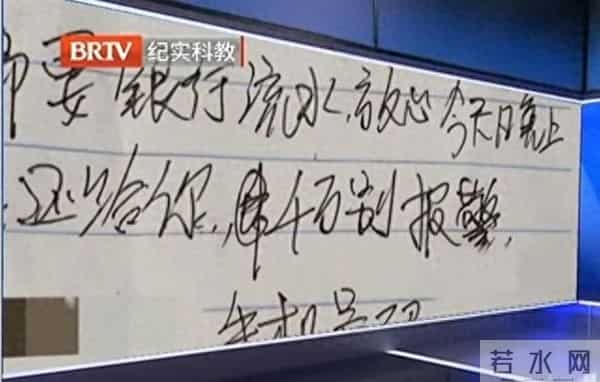 BRTV 纪实科教
要银行流水,放心今天晚上
还给你,千万别报警,
手机号码
若水网